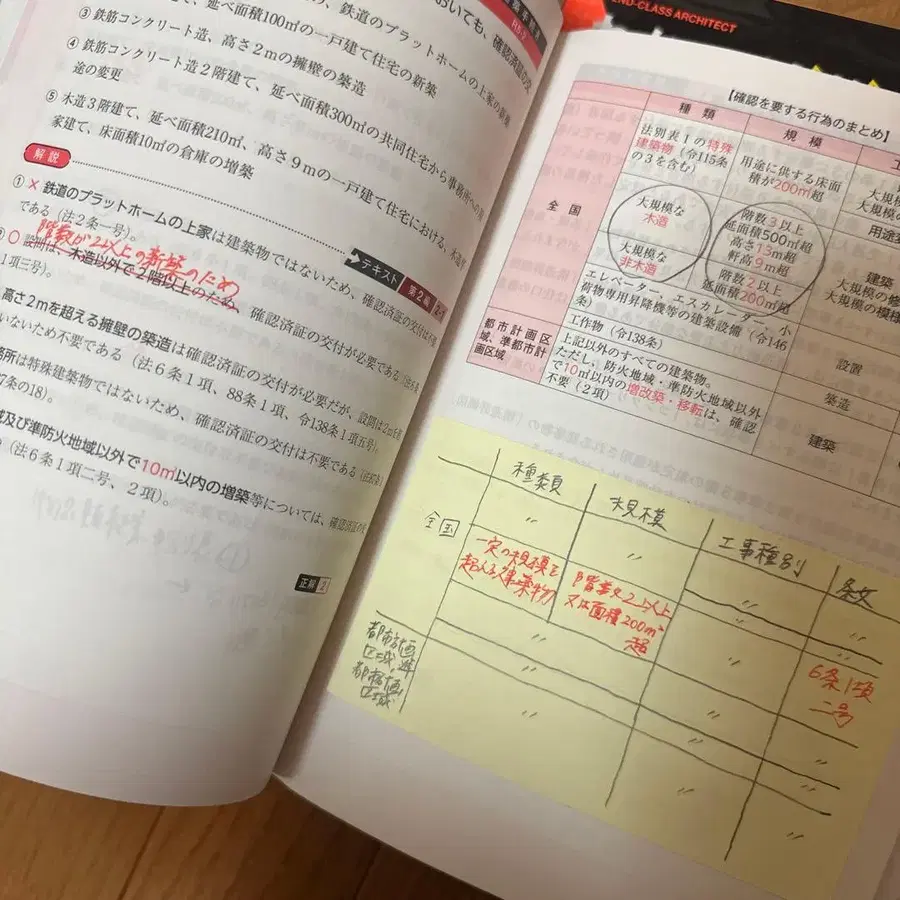 おいても、確認済証の交
鉄道のプラットホームの上家の新築
延べ面積100㎡の一戸建て住宅の新築
③ 鉄筋コンクリート造、高さ2mの擁壁の築造
④ 鉄筋コンクリート造2階建て、延べ面積300㎡の共同住宅から事務所への用
途の変更
⑤ 木造3階建て、延べ面積210㎡、高さ9mの一戸建て住宅における、木造平
家建て、床面積10㎡の倉庫の増築
解説
① × 鉄道のプラットホームの上家は建築物ではないため、確認済証の交付は不
である（法2条一号）。
テキスト 第2編 2-1
階数が2以上の新築のため
○ 設問は、木造以外で2階以上のため、確認済証の交付が必要である
1項三号）。
高さ2mを超える擁壁の築造は確認済証の交付が必要だが、設問は2mを
いないため不要である（法6条1項、88条1項、令138条1項五号）。
務所は特殊建築物ではないため、確認済証の交付は不要である
7条の18）。
域及び準防火地域以外で10㎡以内の増築等については、確認済証の
（法6条1項二号、2項）。
正解 2
END-CLASS ARCHITECT
【確認を要する行為のまとめ】
種類
規模
全国
法別表1の特殊
建築物（令115条
の3を含む）
用途に供する床面
積が200㎡超
大規模
大規模の
用途変
大規模な
木造
階数3以上
延面積500㎡超
高さ13m超
軒高9m超
大規模な
非木造
階数2以上
延面積200㎡超
建築
大規模の修
大規模の模様
エレベーター、エスカレーター、小
荷物専用昇降機等の建築設備（令146
条）
設置
工作物（令138条）
築造
都市計画区
域、準都市計
画区域
上記以外のすべての建築物。
ただし、防火地域・準防火地域以外
で10㎡以内の増改築・移転は、確認
不要（2項）
建築
種類
規模
工事種別
条文
全国
〃
〃
〃
〃
一定の規模を
超える建築物
階数2以上
又は面積200㎡
超
〃
6条1項
二号
〃
〃
〃
〃
都市計画
区域、準
都市計画
区域
〃
〃
〃
〃